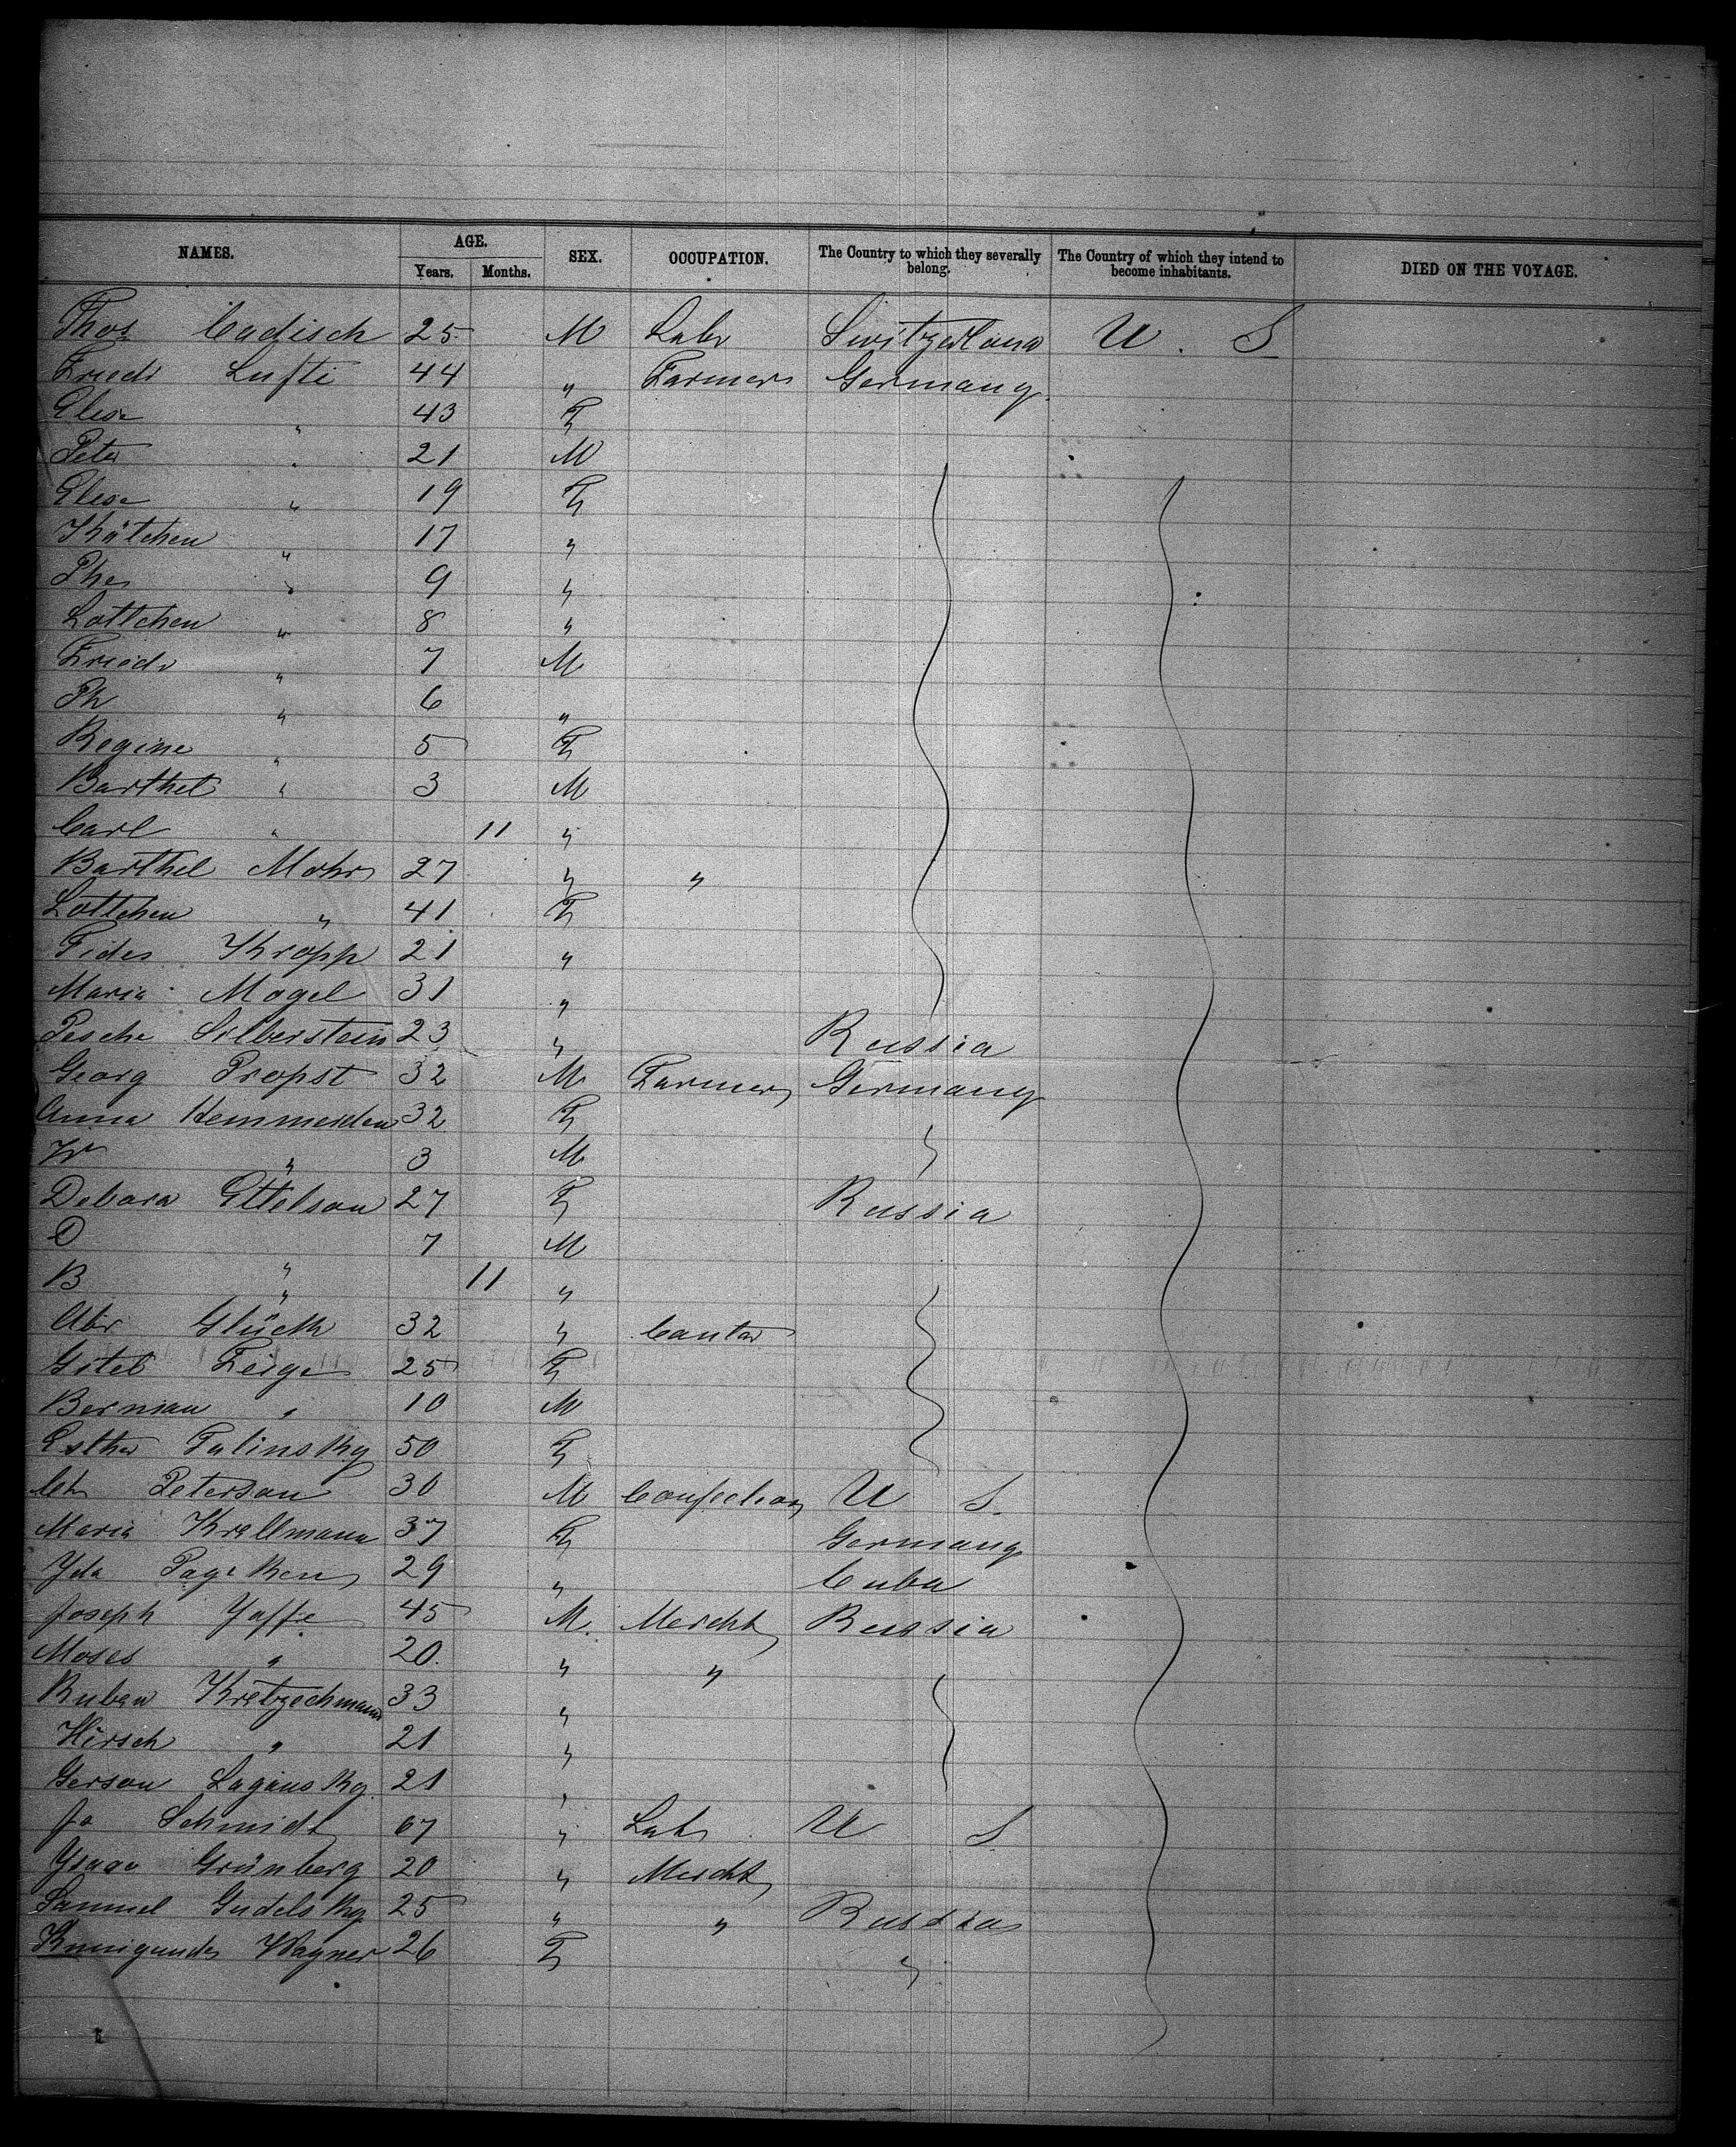 NAMES. AGE. SEX. OCCUPATION. The Country to which they severally belong. The Country of which they intend to become inhabitants. DIED ON THE VOYAGE.
Years. Months.
Thos Cadisch 25 M Labr Switzerland U. S
Friedr Lufti 44 " Farmer Germany
Elise " 43 F
Peter " 21 M
Elise " 19 F
Kätchen " 17 "
Phe " 9 "
Lottchen " 8 "
Friedr " 7 M
Ph " 6 "
Regine " 5 F
Barthel " 3 M
Carl " 11 "
Barthel Mohr 27 " "
Lottchen " 41 F
Fides Kropp 21 "
Maria Mogel 31 "
Pesche Silberstein 23 " Russia
Georg Propst 32 M Farmer Germany
Anna Hemmerden 32 F
W " 3 M
Debora Ettelson 27 F Russia
D " 7 M
B " 11 "
Abr Glück 32 " Cantor
Gitel Feige 25 F
Berman " 10 M
Esther Talinsky 50 F
Ch Peterson 30 M Confection U S
Maria Krellmann 37 F Germany
Ida Pageken 29 " Cuba
Joseph Jaffe 45 M. Mercht Russia
Moses " 20 " "
Ruben Kretzschmann 33 "
Hirsch " 21 "
Gerson Laginsky 21 "
Jo Schmidt 67 " Labr U S
Isaac Grünberg 20 " Mercht
Samuel Gudelsky 25 " " Russia
Kunigunde Wagner 26 F "